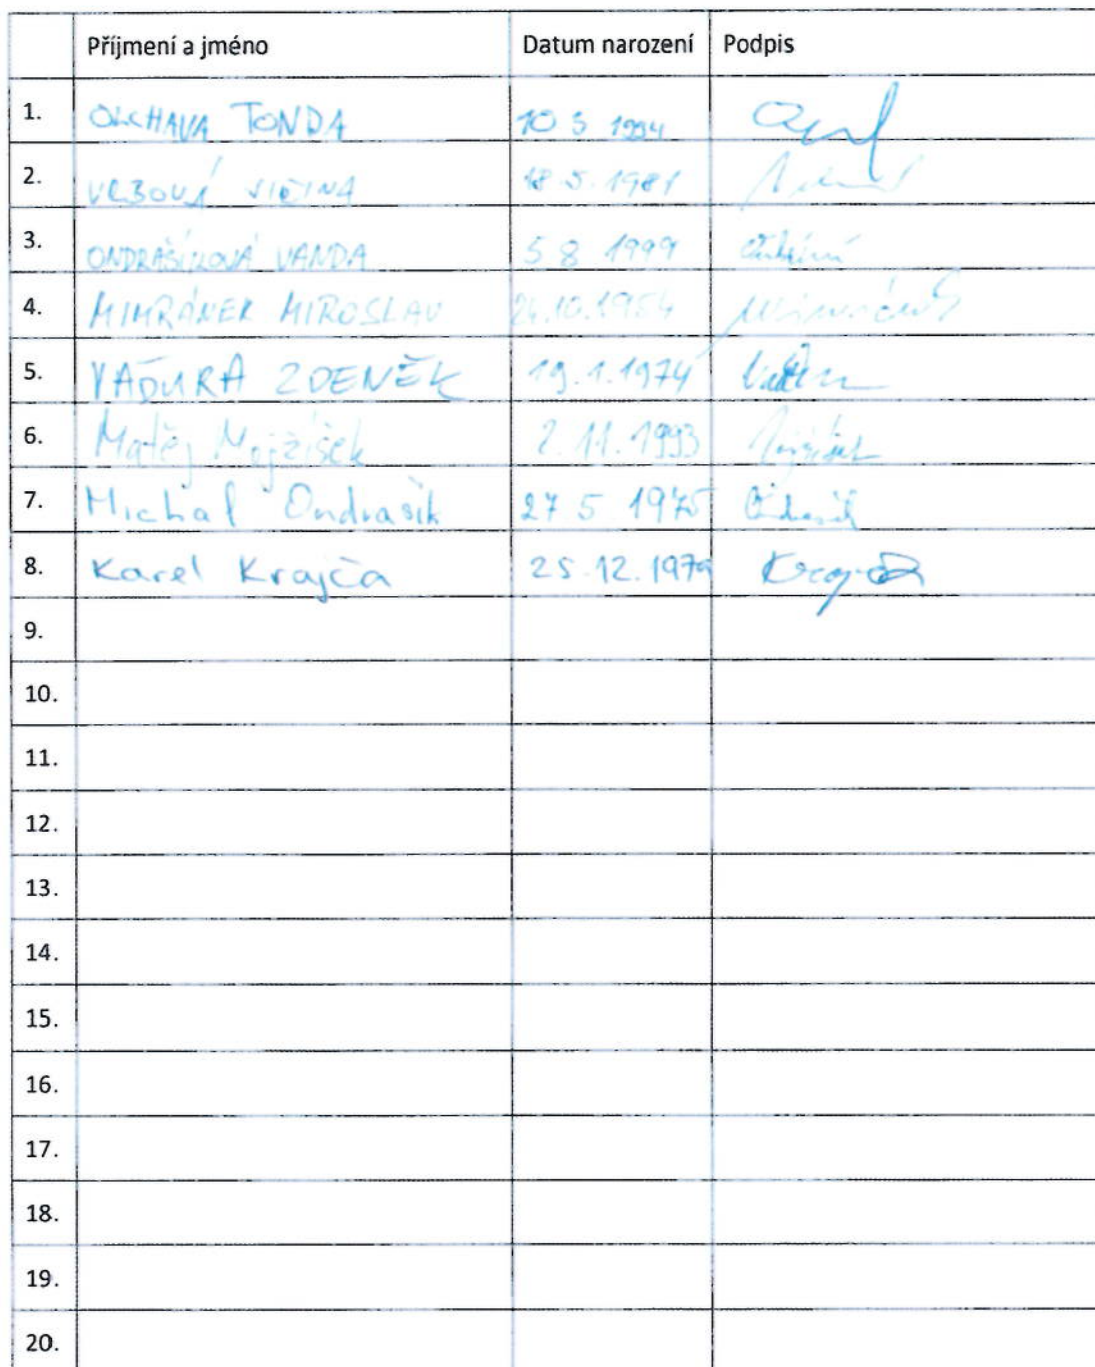 Příjmení a jméno Datum narození Podpis
1. OLCHAVA TONDA 10 5 1994
2. VRBOVÁ JIŘINA 18.5.1981
3. ONDRAŠÍKOVÁ VANDA 5 8 1999
4. MIMRÁNEK MIROSLAV 24.10.1954
5. VAĎURA ZDENĚK 19.1.1974
6. Matěj Mojžíšek 2.11.1993
7. Michal Ondrašík 27 5 1975
8. Karel Krajča 25.12.1979
9.
10.
11.
12.
13.
14.
15.
16.
17.
18.
19.
20.